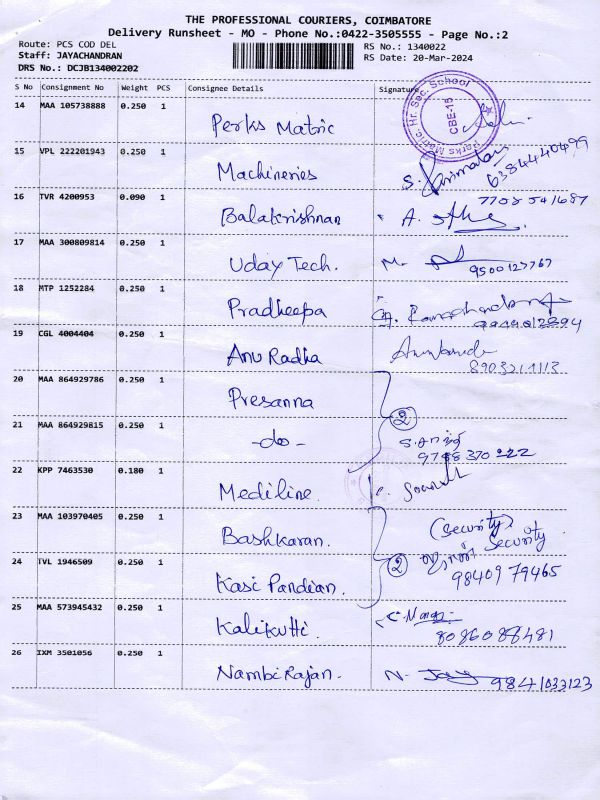 THE PROFESSIONAL COURIERS, COIMBATORE
Delivery Runsheet - MO - Phone No.:0422-3505555 - Page No.:2
Route: PCS COD DEL RS No.: 1340022
Staff: JAYACHANDRAN RS Date: 20-Mar-2024
DRS No.: DCJB134002202
S No Consignment No Weight PCS Consignee Details Signature
14 MAA 105738888 0.250 1 Perks Matric
Perks Matric. Hr. Sec. School
CBE-15
15 VPL 222201943 0.250 1 Machineries 6384440499
16 TVR 4200953 0.090 1 Balakrishnan A. 7708541687
17 MAA 300809814 0.250 1 Uday Tech. M. 9500127767
18 MTP 1252284 0.250 1 Pradheepa
19 CGL 4004404 0.250 1 Anu Radha 8903211113
20 MAA 864929786 0.250 1 Presanna
21 MAA 864929815 0.250 1 -do- 2 9788370222
22 KPP 7463530 0.180 1 Mediline
23 MAA 103970405 0.250 1 Bashkaran. (Security)
24 TVL 1946509 0.250 1 Kasi Pandian. 2 Security 9840979465
25 MAA 573945432 0.250 1 Kalikutti. 8086088481
26 IXM 3501056 0.250 1 Nambi Rajan. N. Jay 9841033123